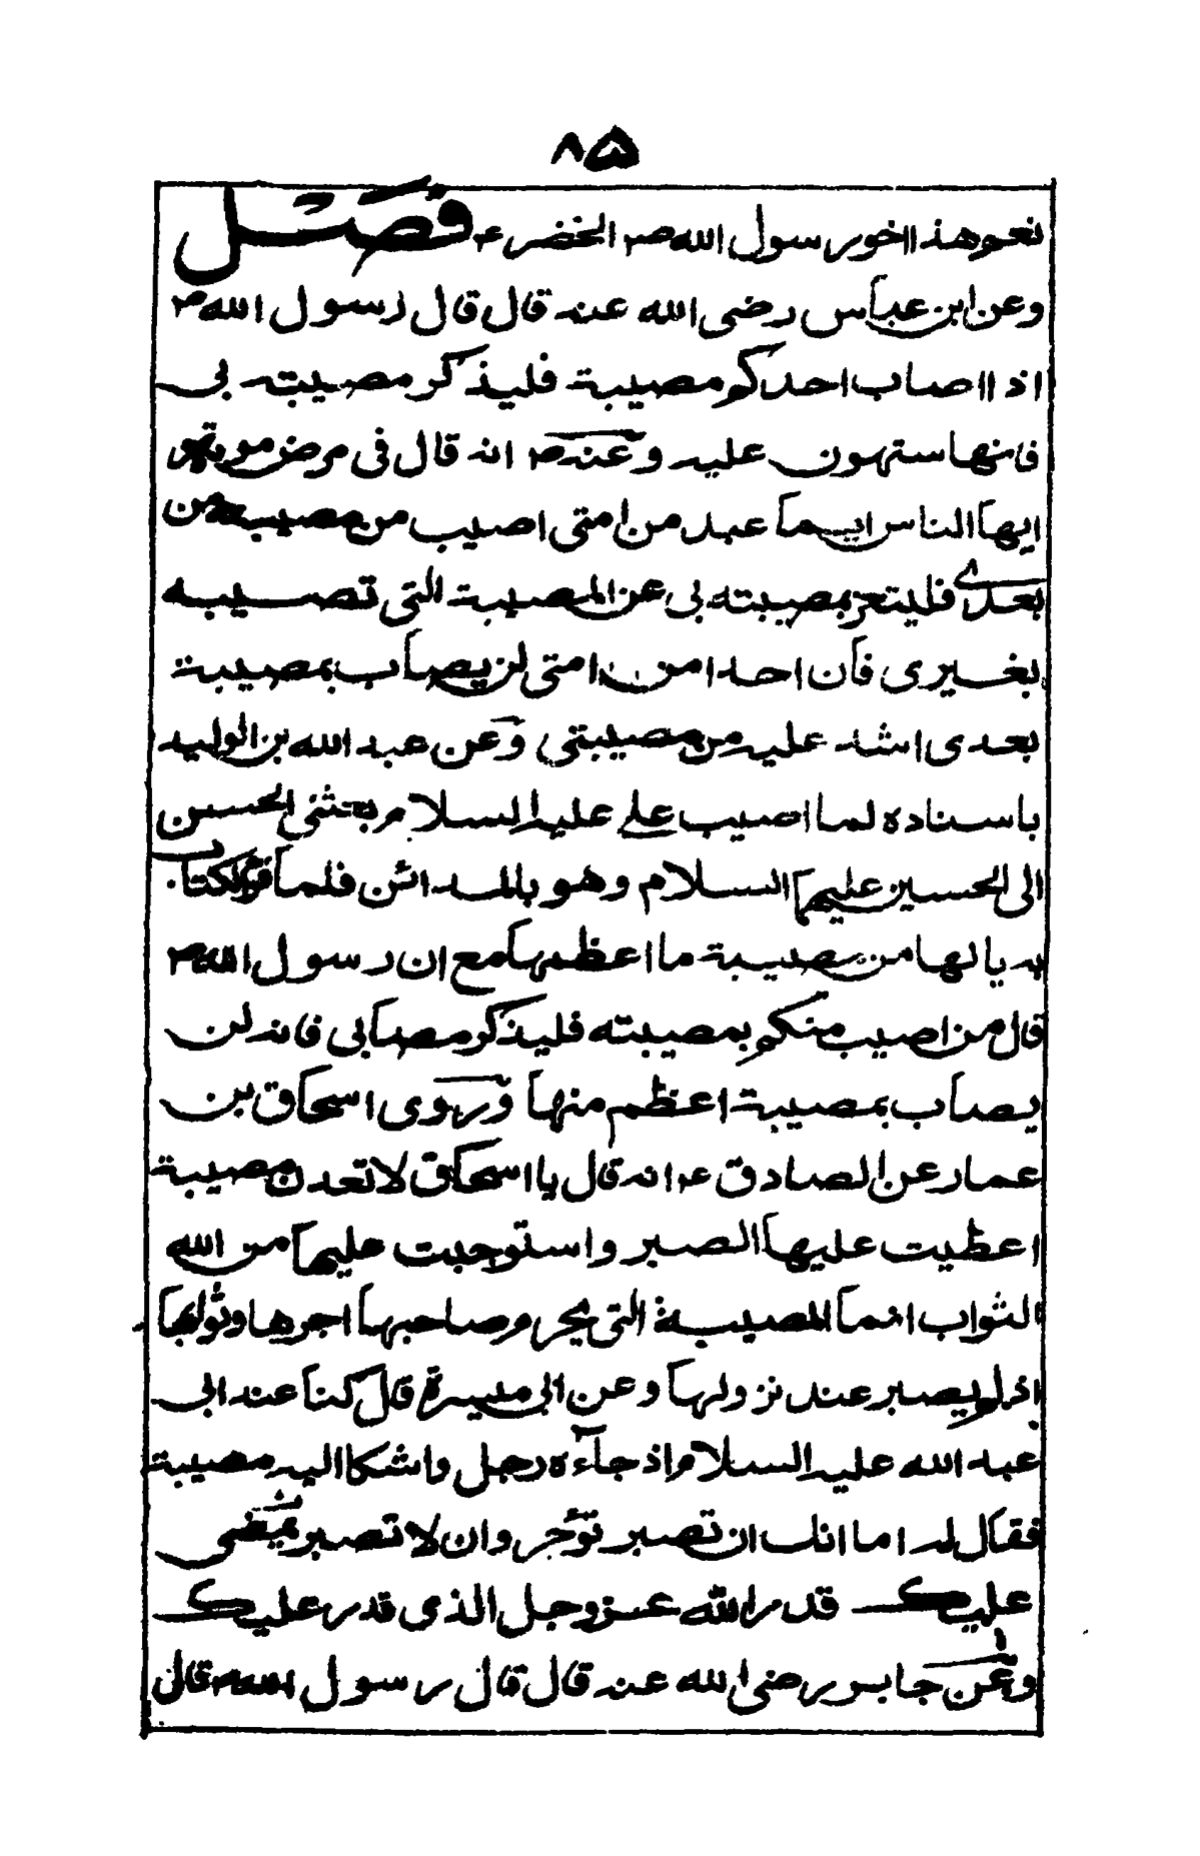 ۸۵
نعم هذا اخو رسول الله ص الخضر ع فصل
وعن ابن عباس رضى الله عنه قال قال رسول الله ص
اذا اصاب احدكم مصيبة فليذكر مصيبته بى
فانها ستهون عليه وعنه ص انه قال فى مرض موته
ايها الناس ايما عبد من امتى اصيب من مصيبة من
بعدى فليتعز بمصيبته بى عن المصيبة التى تصيبه
بغيرى فان احدا من امتى لن يصاب بمصيبة
بعدى اشد عليه من مصيبتى وعن عبد الله بن الوليد
باسناده لما اصيب على عليه السلام بعثنى الحسن
الى الحسين عليهما السلام وهو بالمدائن فلما قرء الكتاب
يا لها من مصيبة ما اعظمها مع ان رسول الله ص
قال من اصيب منكم بمصيبته فليذكر مصابى فانه لن
يصاب بمصيبة اعظم منها وروى اسحاق بن
عمار عن الصادق ع انه قال يا اسحاق لا تعدن مصيبة
اعطيت عليها الصبر واستوجبت عليها من الله
الثواب انما المصيبة التى يحرم صاحبها اجرها وثوابها
اذا لم يصبر عند نزولها وعن ابى ميسرة قال كنا عند ابى
عبد الله عليه السلام اذ جاءه رجل واشكا اليه مصيبة
فقال له اما انك ان تصبر تؤجر وان لا تصبر يمضى
عليك قدر الله عز وجل الذى قدر عليك
وعن جابر رضى الله عنه قال قال رسول الله ص قال